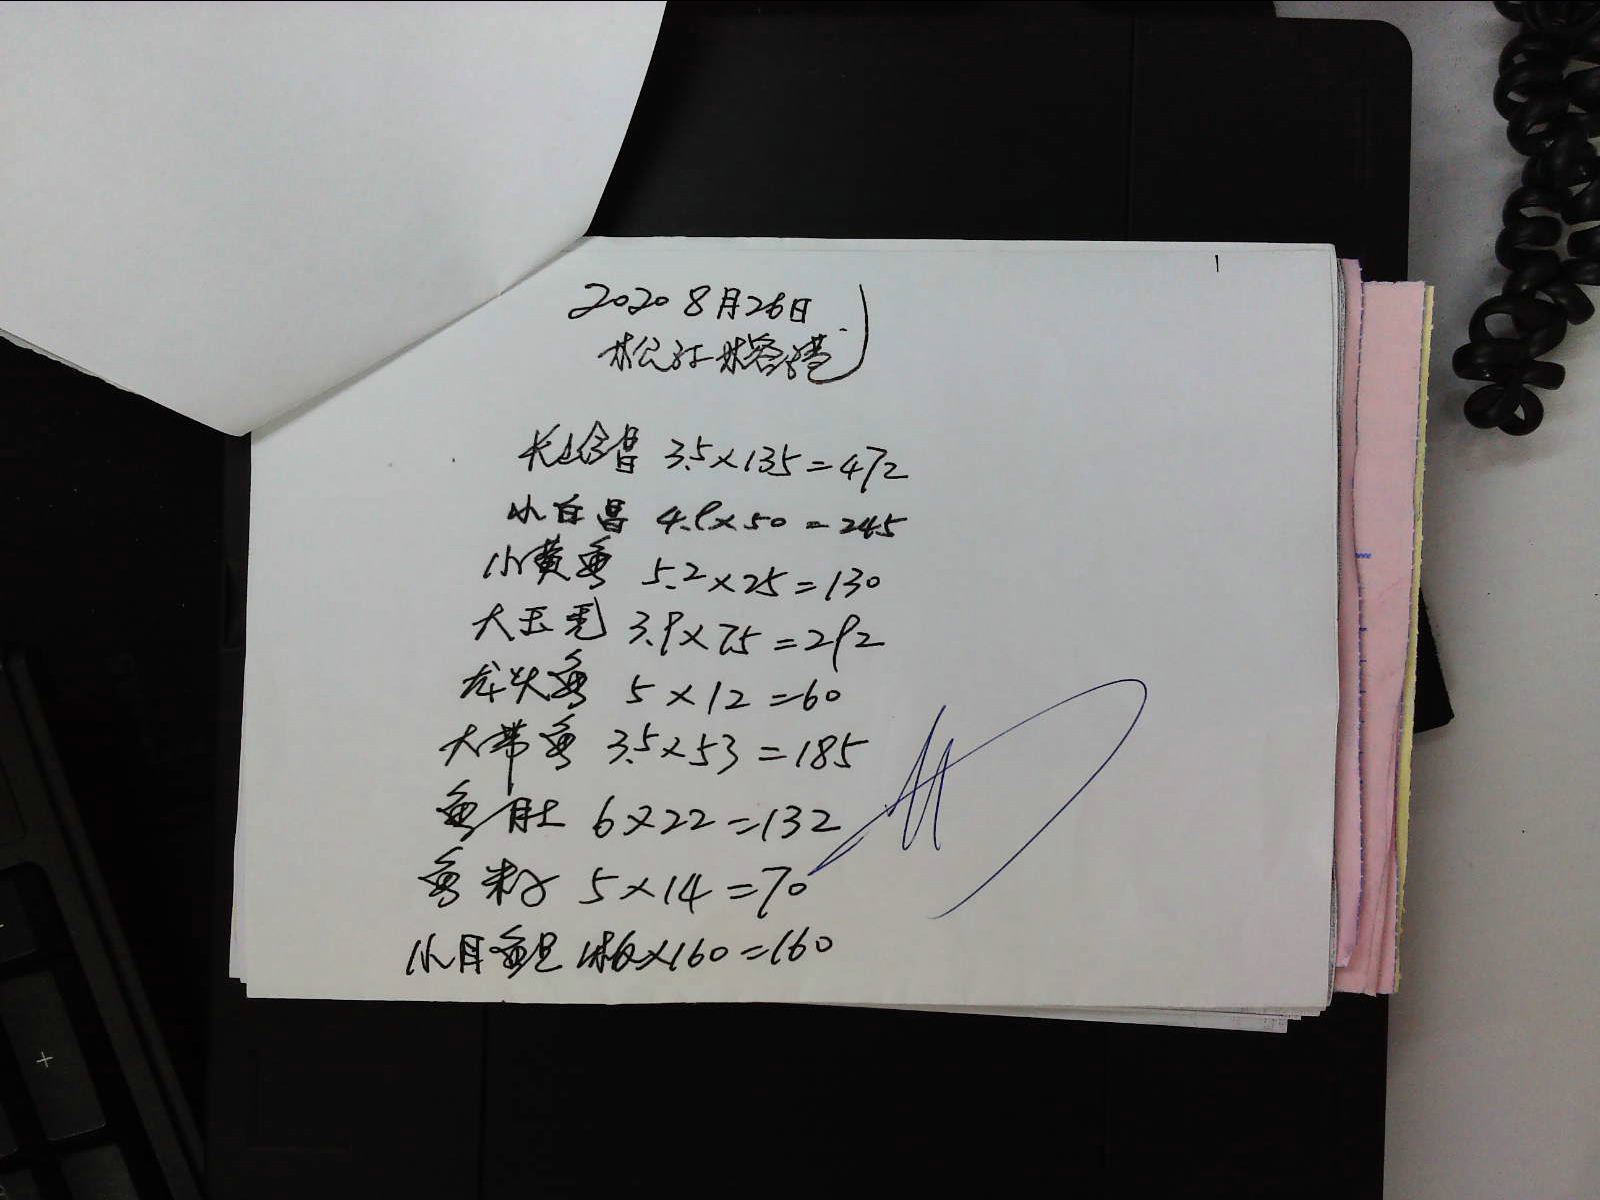 1
2020 8月26日
松江
长 昌 3.5×135=472
小白昌 4.9×50=245
小黄鱼 5.2×25=130
大玉秃 3.9×75=292
龙头鱼 5×12=60
大带鱼 3.5×53=185
鱼肚 6×22=132
鱼籽 5×14=70
小目鱼 1板×160=160